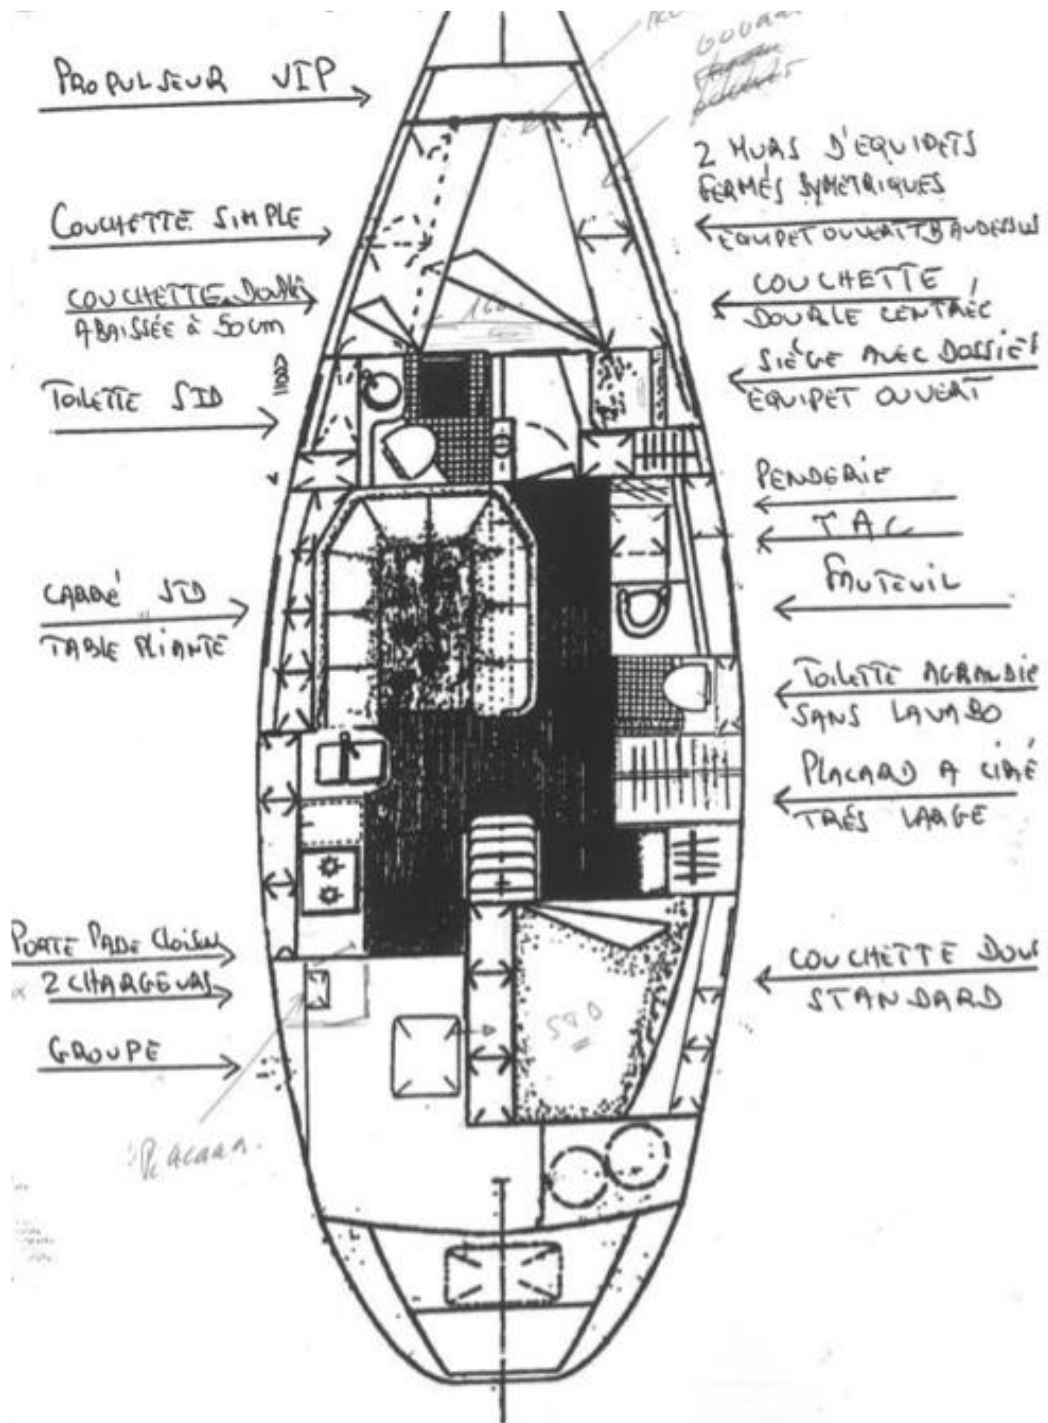 PROPULSEUR VIP
COUCHETTE SIMPLE
COUCHETTE DOUBLE
ABAISSÉE à 50cm
TOILETTE STD
CARRÉ STD
TABLE PLIANTE
PORTE PADE CLOISON
2 CHARGEURS
GROUPE
PLACARD
160
STD
2 MURS D'EQUIPETS
FERMÉS SYMÉTRIQUES
EQUIPET OUVERT AUDESSUS
COUCHETTE
DOUBLE CENTRÉE
SIÈGE AVEC DOSSIER
EQUIPET OUVERT
PENDERIE
TAC
FAUTEUIL
TOILETTE AGRANDIE
SANS LAVABO
PLACARD A CIRÉ
TRÉS LARGE
COUCHETTE DOU
STANDARD